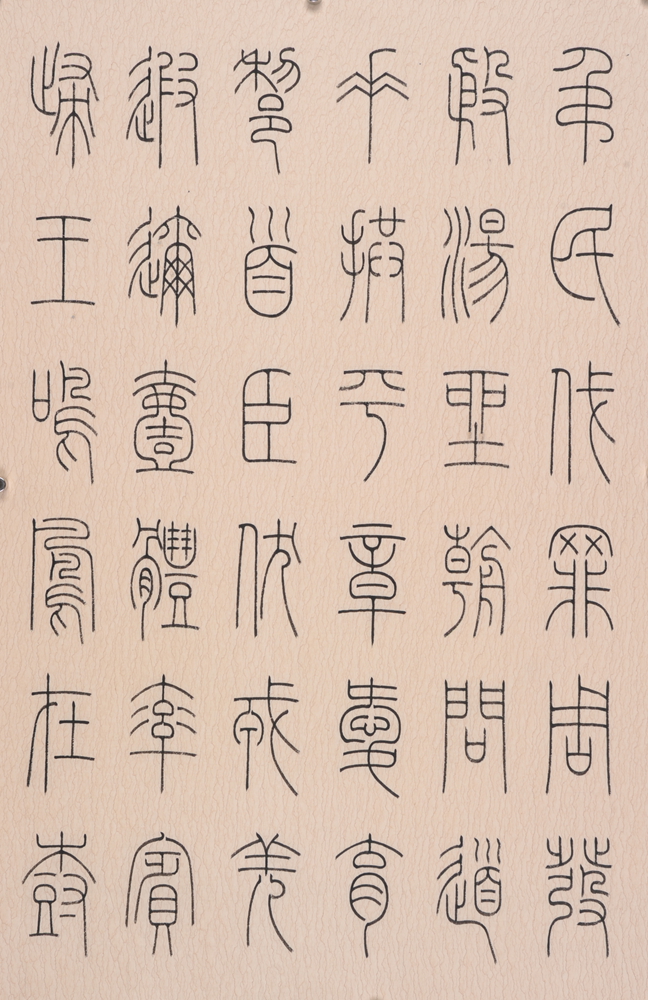 弔民伐罪周發
殷湯坐朝問道
垂拱平章愛育
黎首臣伏戎羌
遐邇壹體率賓
歸王鳴鳳在樹